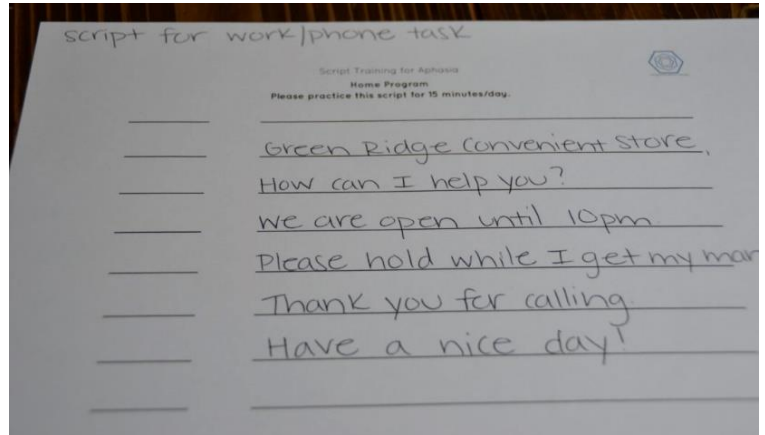 script for work/phone task
Script Training for Aphasia
Home Program
Please practice this script for 15 minutes/day.
Green Ridge Convenient Store,
How can I help you?
We are open until 10pm.
Please hold while I get my man
Thank you for calling.
Have a nice day!